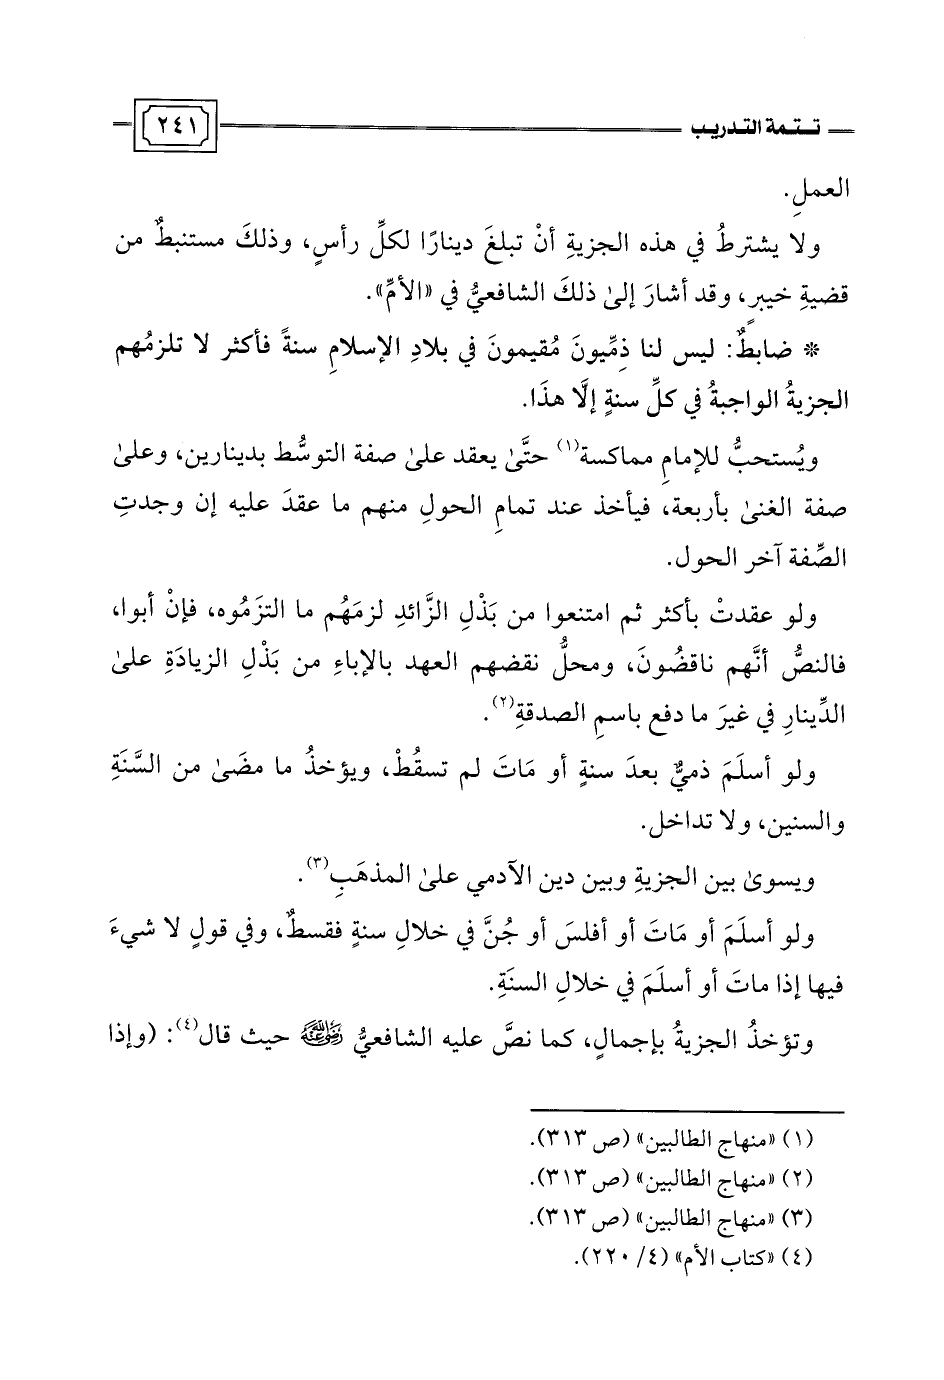 تـتـمة التـدريـب
٢٤١
العملِ.
ولا يشترطُ في هذه الجزيةِ أنْ تبلغَ دينارًا لكلِّ رأسٍ، وذلكَ مستنبطٌ من
قضيةِ خيبرٍ، وقد أشارَ إلىٰ ذلكَ الشافعيُّ في «الأمِّ».
* ضابطٌ: ليس لنا ذِمِّيونَ مُقيمونَ في بلادِ الإسلامِ سنةً فأكثر لا تلزمُهم
الجزيةُ الواجبةُ في كلِّ سنةٍ إلَّا هذَا.
ويُستحبُّ للإمامِ مماكسة(١) حتَّىٰ يعقد علىٰ صفة التوسُّط بدينارين، وعلىٰ
صفة الغنىٰ بأربعة، فيأخذ عند تمامِ الحولِ منهم ما عقدَ عليه إن وجدتِ
الصِّفة آخر الحول.
ولو عقدتْ بأكثر ثم امتنعوا من بَذْلِ الزَّائدِ لزمَهُم ما التزَمُوه، فإنْ أبوا،
فالنصُّ أنَّهم ناقضُونَ، ومحلُّ نقضهم العهد بالإباءِ من بَذْلِ الزيادَةِ علىٰ
الدِّينارِ في غيرَ ما دفع باسمِ الصدقةِ(٢).
ولو أسلَمَ ذميٌّ بعدَ سنةٍ أو مَاتَ لم تسقُطْ، ويؤخذُ ما مضَىٰ من السَّنَةِ
والسنين، ولا تداخل.
ويسوىٰ بين الجزيةِ وبين دين الآدمي علىٰ المذهَبِ(٣).
ولو أسلَمَ أو مَاتَ أو أفلسَ أو جُنَّ في خلالِ سنةٍ فقسطٌ، وفي قولٍ لا شيءَ
فيها إذا ماتَ أو أسلَمَ في خلالِ السنَةِ.
وتؤخذُ الجزيةُ بإجمالٍ، كما نصَّ عليه الشافعيُّ رضي الله عنه حيث قال(٤): (وإذا
(١) «منهاج الطالبين» (ص ٣١٣).
(٢) «منهاج الطالبين» (ص ٣١٣).
(٣) «منهاج الطالبين» (ص ٣١٣).
(٤) «كتاب الأم» (٤/ ٢٢٠).